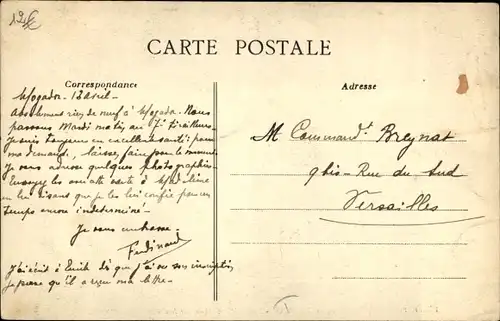 CARTE POSTALE
Correspondance
Adresse
Mogador. 12 Avril -
Absolument rien de neuf à Mogador. Nous
passons Mardi matin au
Je suis toujours en excellente santé; pour
ma demande, laissez faire pour le moment
Je vous envoie quelques photographies
cette carte à Madeleine
en lui disant que je les lui confie pour un
temps encore indéterminé -
Je vous embrasse.
Ferdinand
J'ai écrit à Emile dès que j'ai eu son inscription
Je pense qu'il a reçu ma lettre -
M. Command.t Breynat
9 bis - Rue du Sud
Versailles